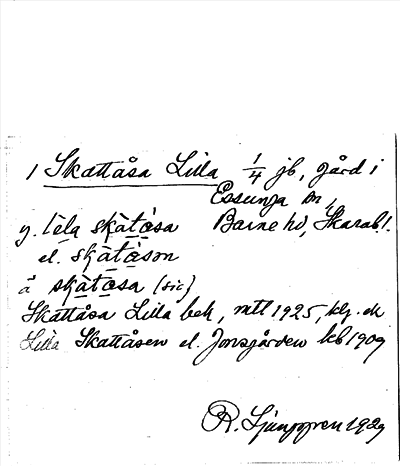 1 Skattåsa Lilla 1/4 jb, gård i
Essunga sn,
y. lela skàtå̀sa Barne hd, Skarab. l.
el. skàtå̀son
å skàtå̀sa (sic)
Skattåsa Lilla bek, mtl 1925,
Lilla Skattåsen el. Jonsgården kb 1909
R. Ljunggren 1929